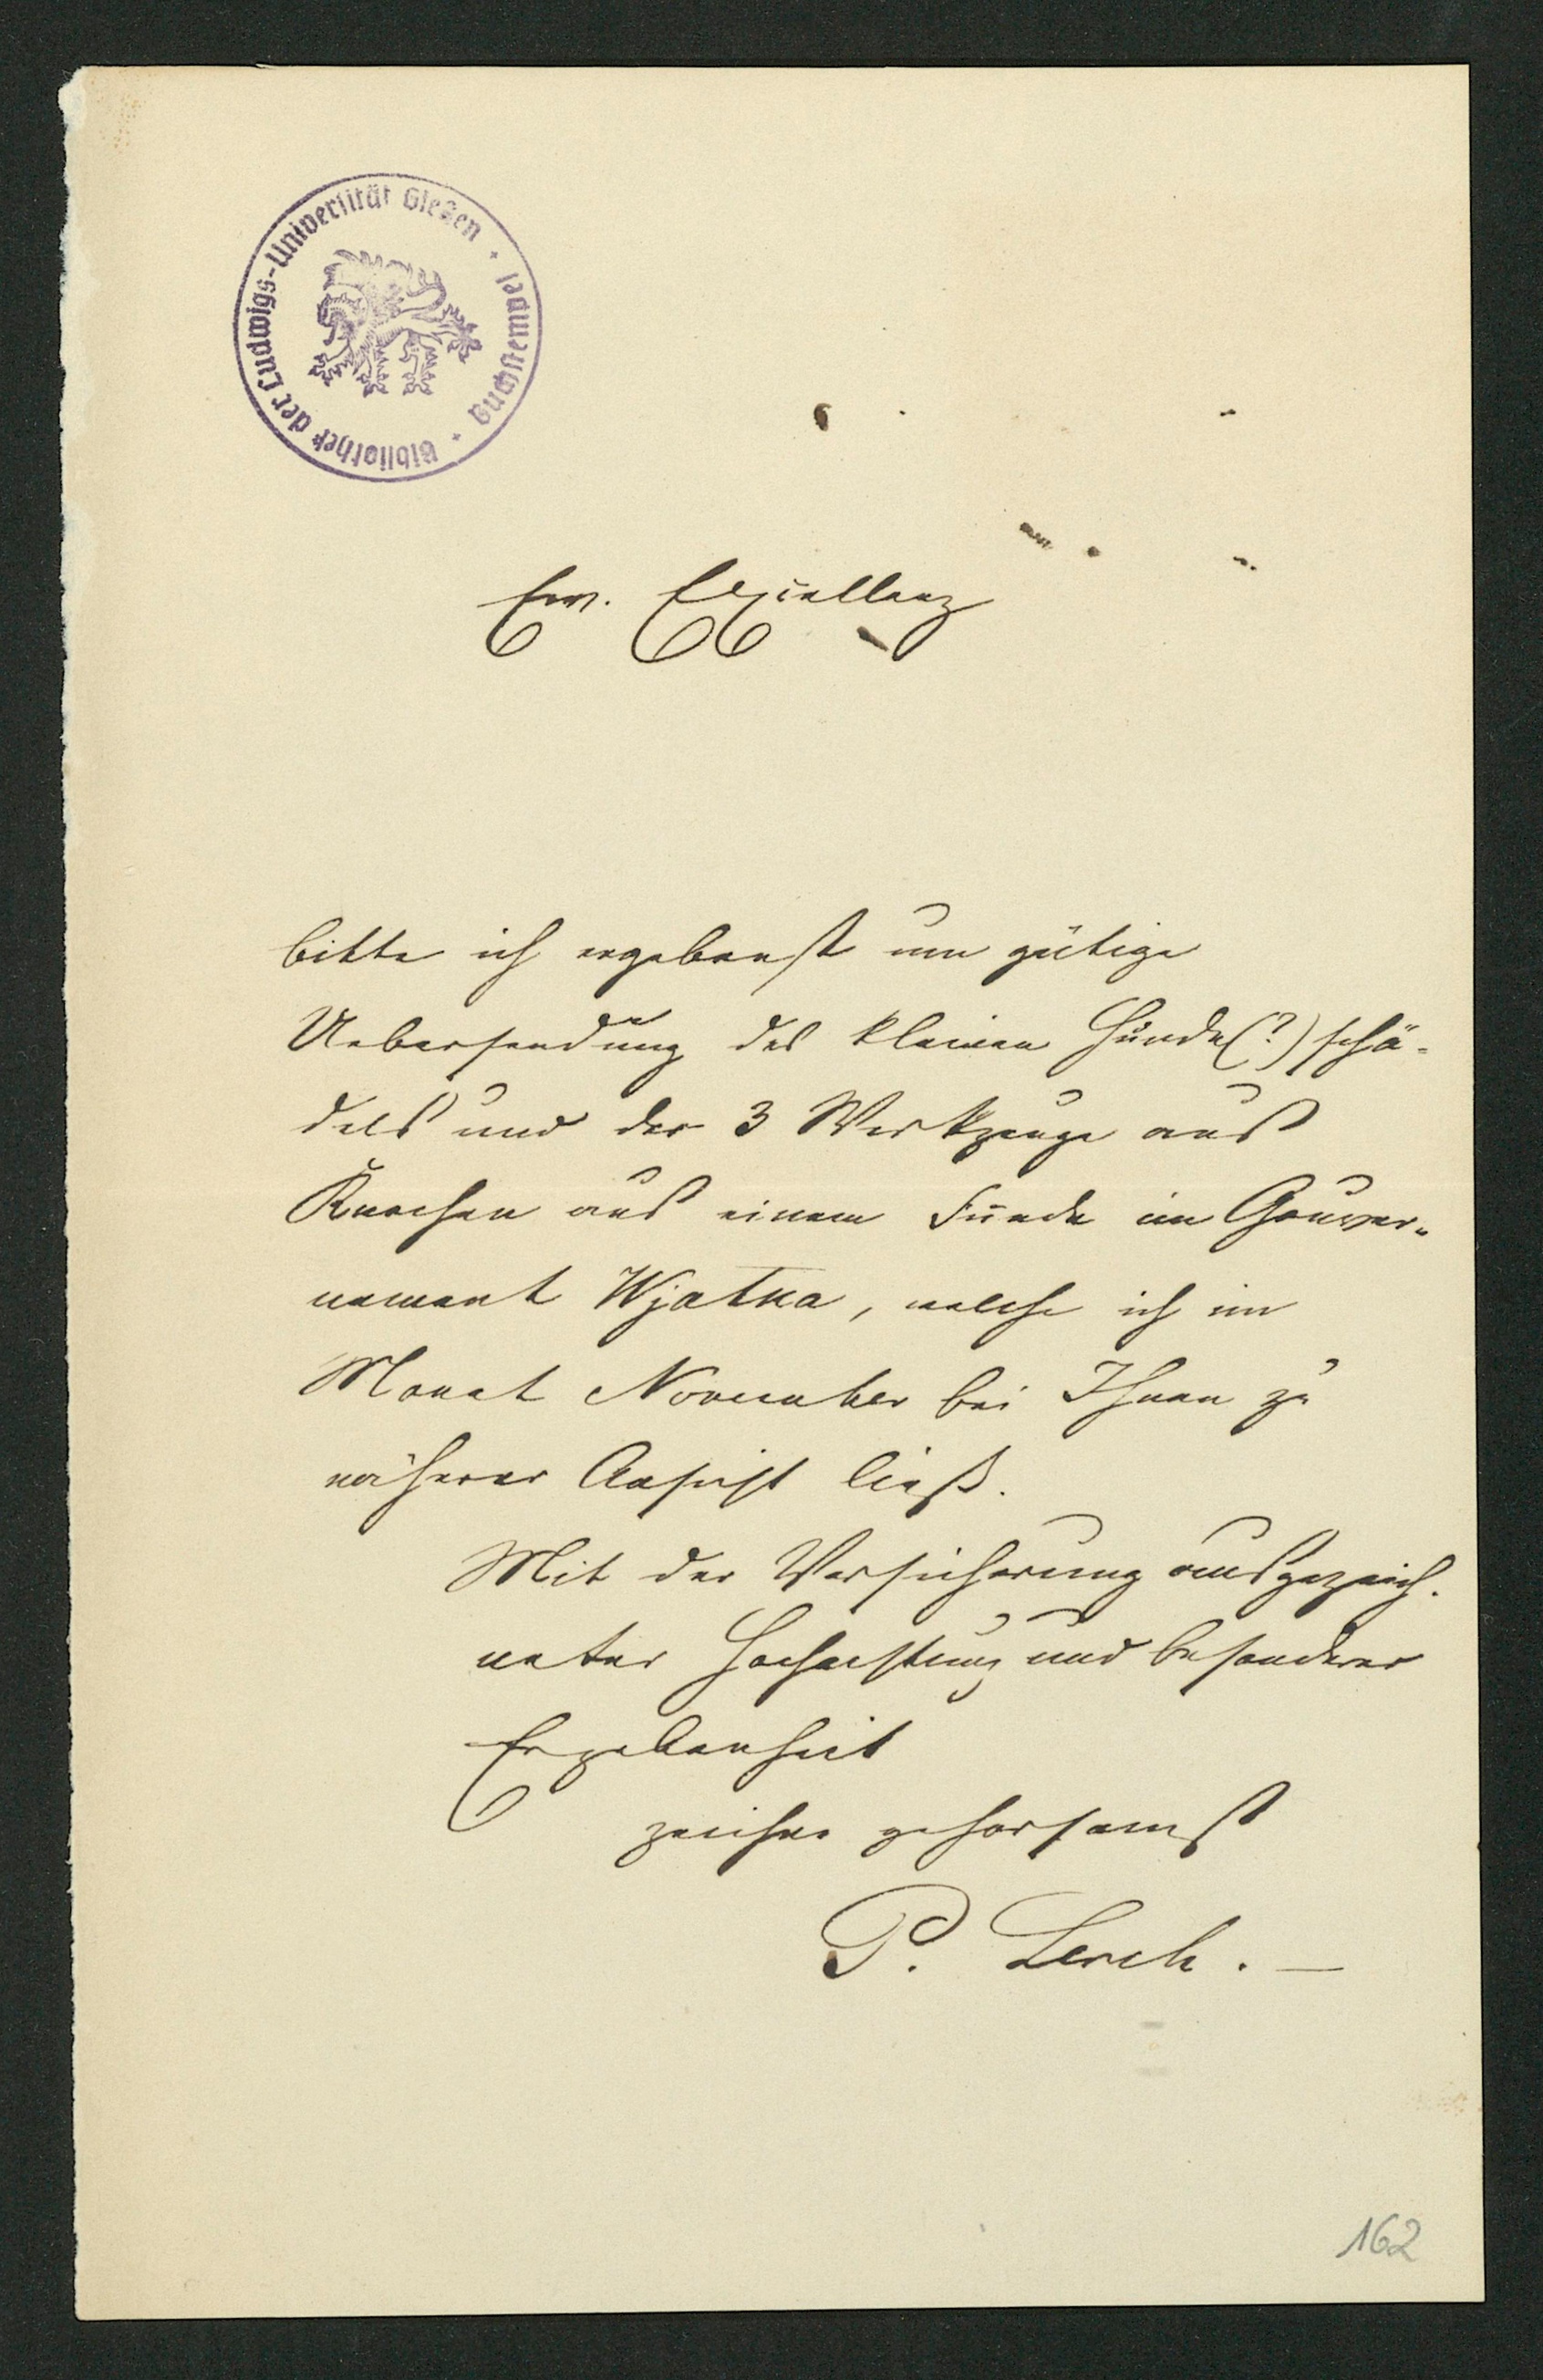 Bibliothek der Ludwigs-Universität Gießen + Buchstempel +
Ew. Excellenz
bitte ich ergebenst um gütige
Uebersendung des kleinen Hunde(?)schä-
dels und der 3 Werkzeuge aus
Knochen aus einem Funde im Gouver-
nement Wjatka, welche ich im
Monat November bei Ihnen zu
näherer Ansicht ließ.
Mit der Versicherung ausgezeich-
neter Hochachtung und besonderer
Ergebenheit
zeichne gehorsamst
P. Lerch. —
162